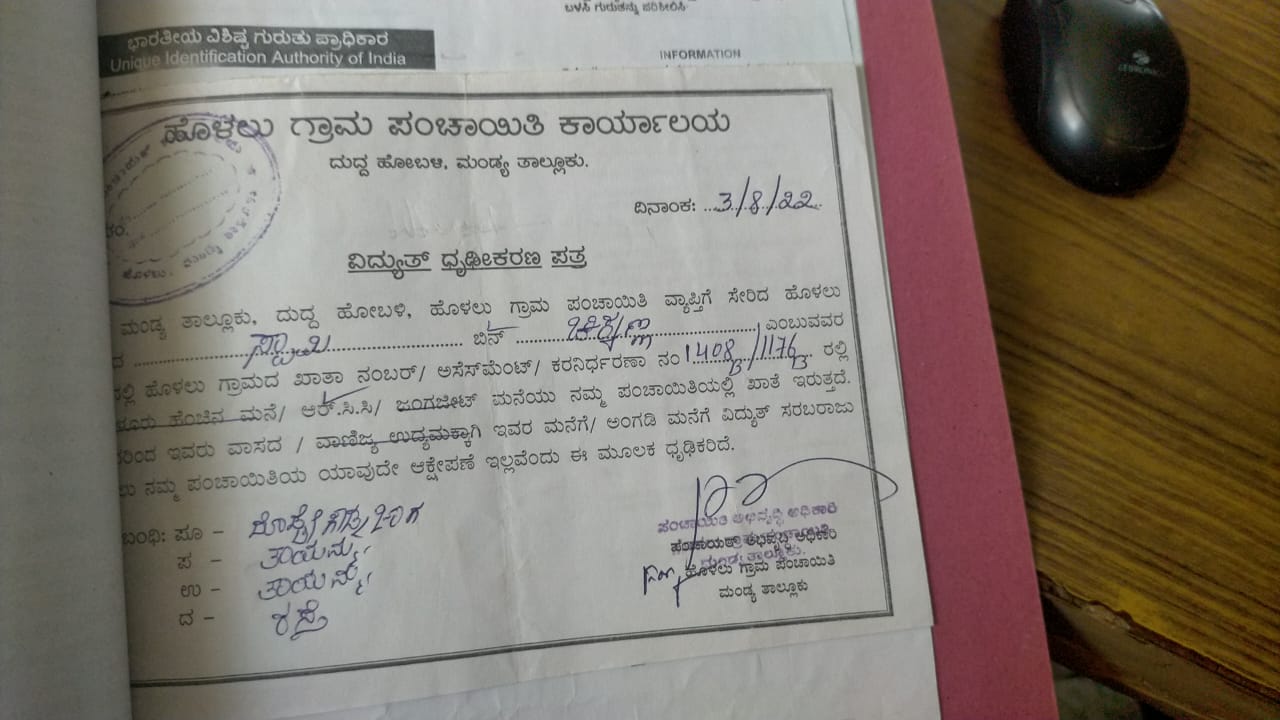 ಬಳಸಿ ಗುರುತನ್ನು ಪರಿಶೀಲಿಸಿ.
ಭಾರತೀಯ ವಿಶಿಷ್ಟ ಗುರುತು ಪ್ರಾಧಿಕಾರ
Unique Identification Authority of India
INFORMATION
ಹೊಳಲು ಗ್ರಾಮ ಪಂಚಾಯಿತಿ ಕಾರ್ಯಾಲಯ
ದುದ್ದ ಹೋಬಳಿ, ಮಂಡ್ಯ ತಾಲ್ಲೂಕು.
ದಿನಾಂಕ: 3/8/22
ವಿದ್ಯುತ್ ಧೃಢೀಕರಣ ಪತ್ರ
ಮಂಡ್ಯ ತಾಲ್ಲೂಕು, ದುದ್ದ ಹೋಬಳಿ, ಹೊಳಲು ಗ್ರಾಮ ಪಂಚಾಯಿತಿ ವ್ಯಾಪ್ತಿಗೆ ಸೇರಿದ ಹೊಳಲು
ಸ್ವಾಮಿ ಬಿನ್ ಎಂಬುವವರ
ಹೊಳಲು ಗ್ರಾಮದ ಖಾತಾ ನಂಬರ್/ ಅಸೆಸ್‌ಮೆಂಟ್/ ಕರನಿರ್ಧರಣಾ ನಂ 1408/1176 ರಲ್ಲಿ
ಹೆಂಚಿನ ಮನೆ/ ಆರ್.ಸಿ.ಸಿ/ ಜಂಗಜೀಟ್ ಮನೆಯು ನಮ್ಮ ಪಂಚಾಯಿತಿಯಲ್ಲಿ ಖಾತೆ ಇರುತ್ತದೆ.
ಇವರು ವಾಸದ / ವಾಣಿಜ್ಯ ಉದ್ಯಮಕ್ಕಾಗಿ ಇವರ ಮನೆಗೆ/ ಅಂಗಡಿ ಮನೆಗೆ ವಿದ್ಯುತ್ ಸರಬರಾಜು
ನಮ್ಮ ಪಂಚಾಯಿತಿಯ ಯಾವುದೇ ಆಕ್ಷೇಪಣೆ ಇಲ್ಲವೆಂದು ಈ ಮೂಲಕ ಧೃಢಿಕರಿದೆ.
ಪೂ –
ಪ – ತಾಯಮ್ಮ
ಉ – ತಾಯಮ್ಮ
ದ – ರಸ್ತೆ
ಪಂಚಾಯಿತಿ ಅಭಿವೃದ್ಧಿ ಅಧಿಕಾರಿ
ಪಂಚಾಯತ್ ಅಭಿವೃದ್ಧಿ ಅಧಿಕಾರಿ
ಮಂಡ್ಯ ತಾಲ್ಲೂಕು.
ಹೊಳಲು ಗ್ರಾಮ ಪಂಚಾಯಿತಿ
ಮಂಡ್ಯ ತಾಲ್ಲೂಕು